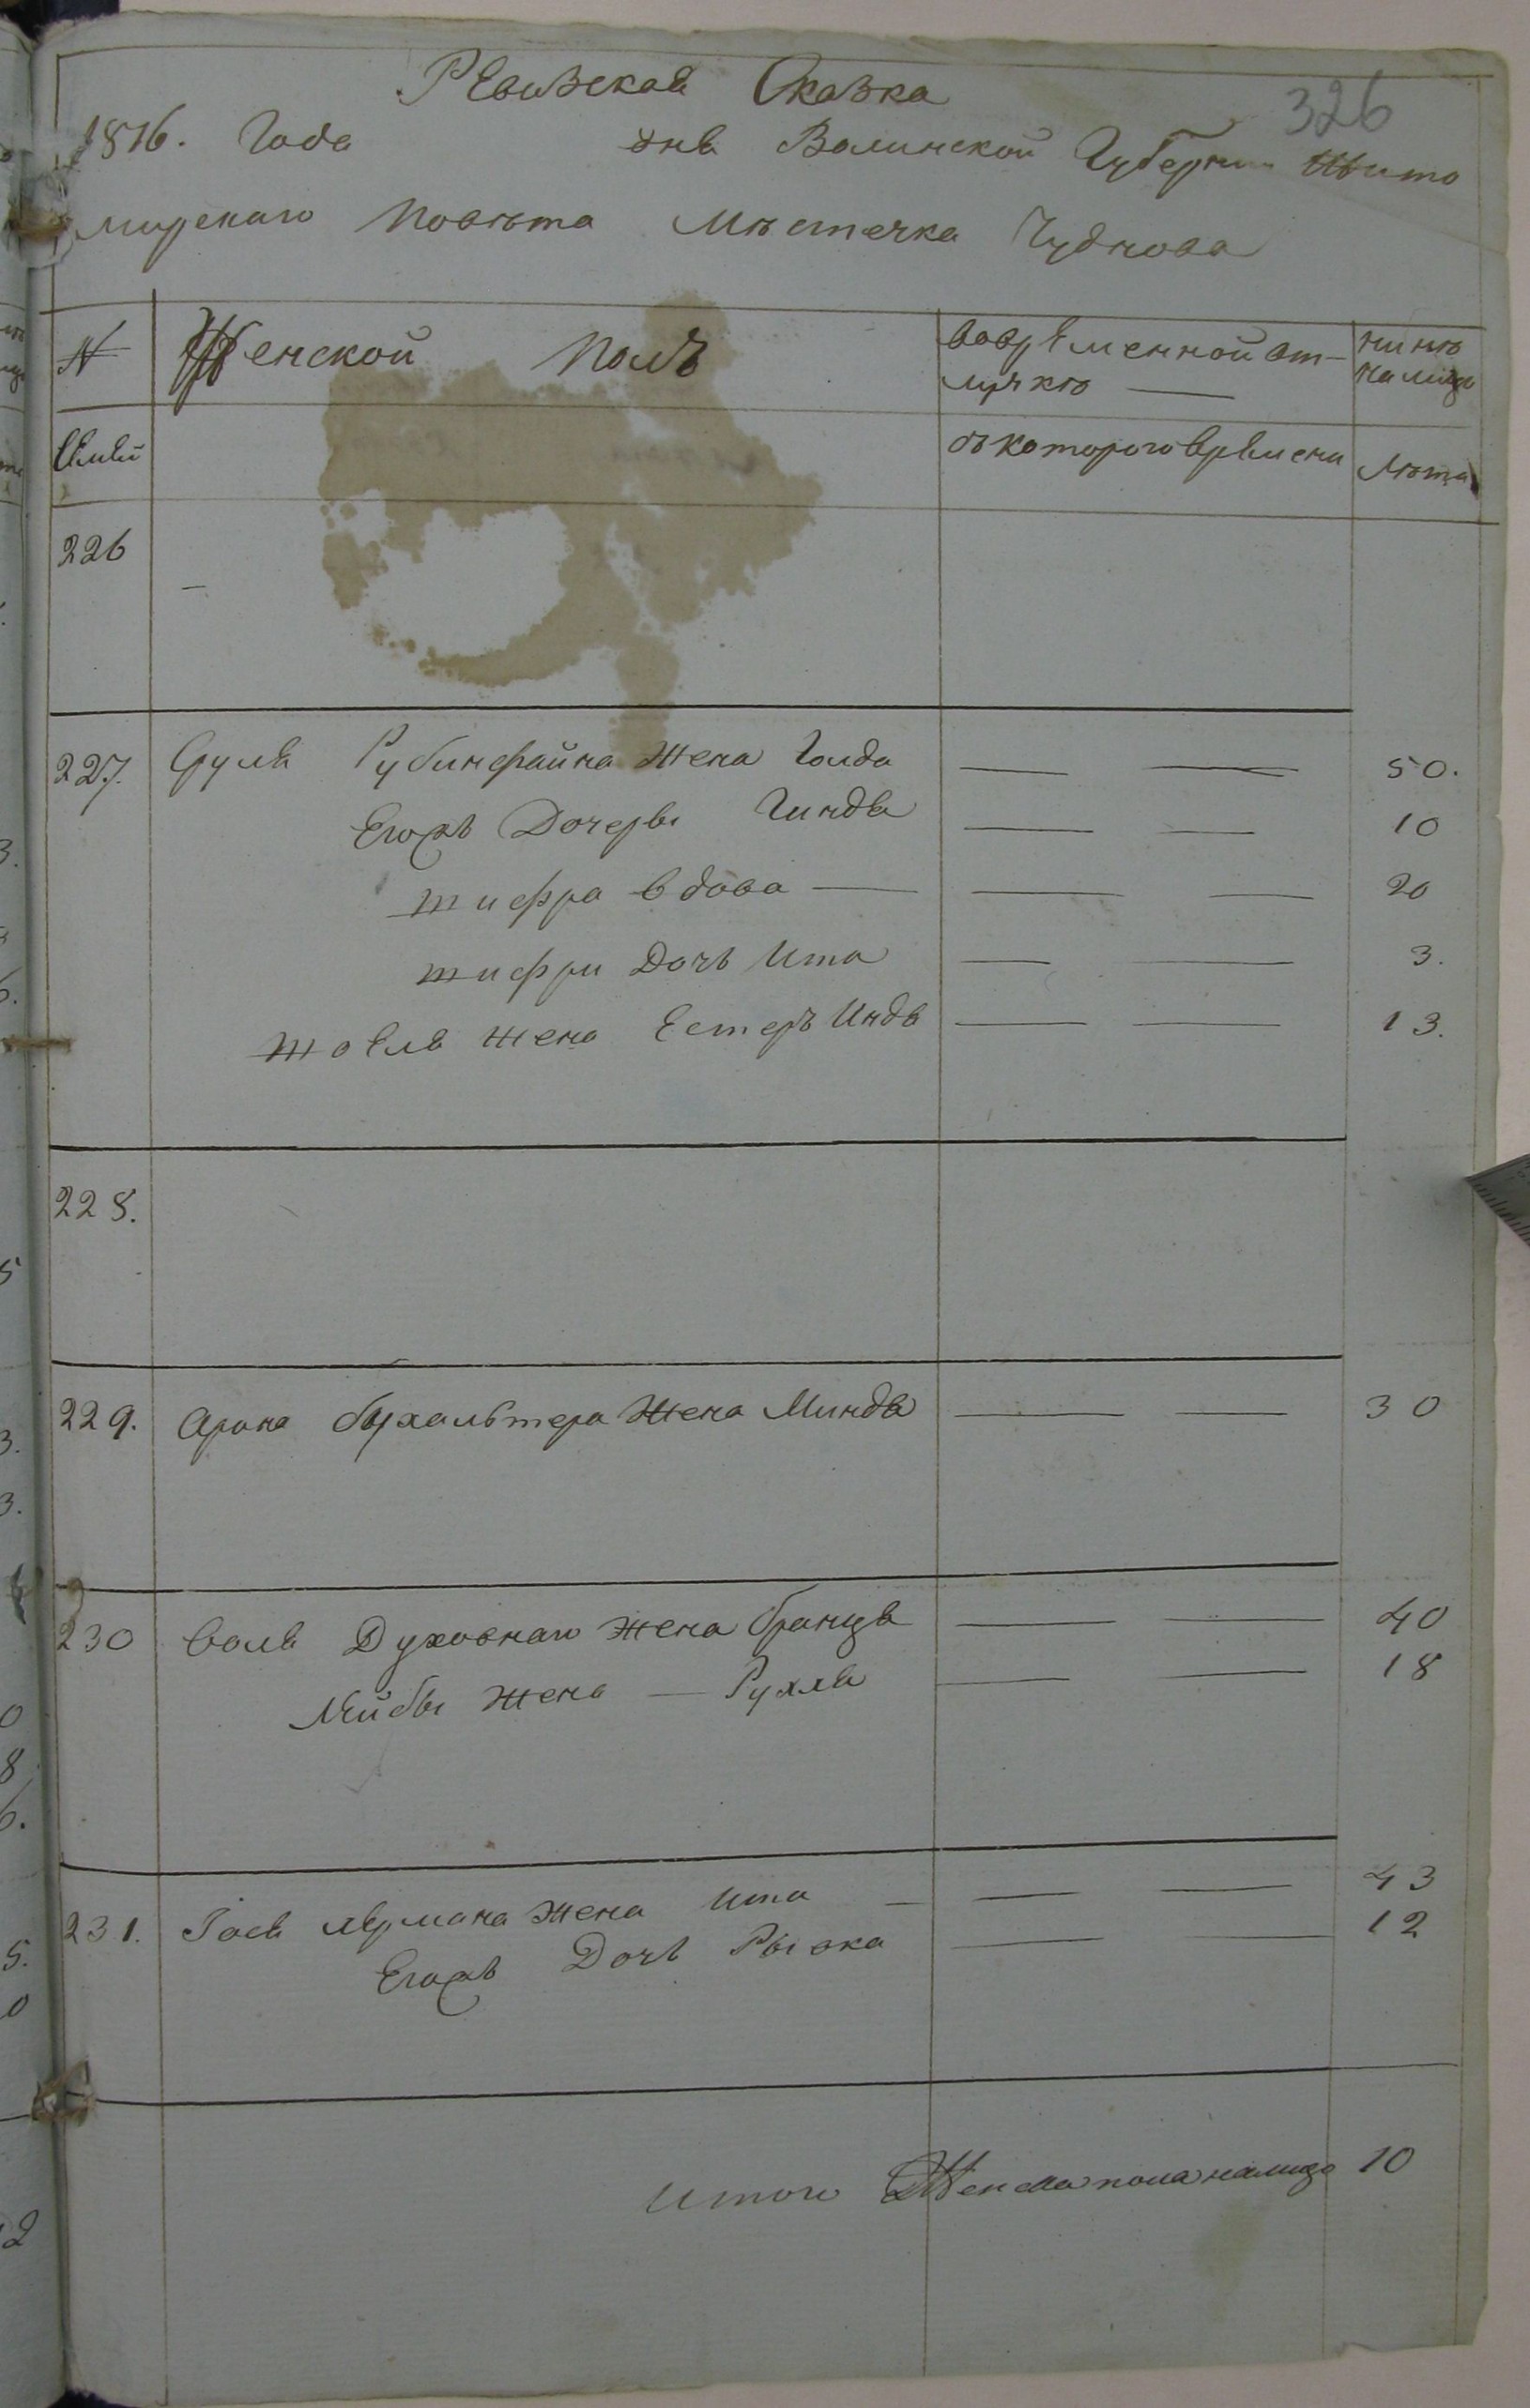 Ревизская Сказка
326
1816. Года дня Волинской Губернии Жито
мирскаго Повѣта Мѣстечка Чуднова
№ Женской Полъ вовременной от-
лучкѣ нинѣ
налицо
Семей съ которого времени Лѣта
226 —
227. Сруля Рубинфайна жена Голда — — 50.
Егожъ Дочеры Гиндя — — 10
шифра вдова — — — 20
шифри Дочь Ита — — 3.
шовля жена Естеръ Индя — — 13.
228.
229. Арона бухальтера Жена Миндя — — 30
230 Воля Духовнаго жена Бранця — — 40
Лейбы жена — Рухля — — 18
231. Іося лермана жена Ита — — — 43
Егожъ Дочь Рыфка — — 12
Итого Женска пола налицо 10